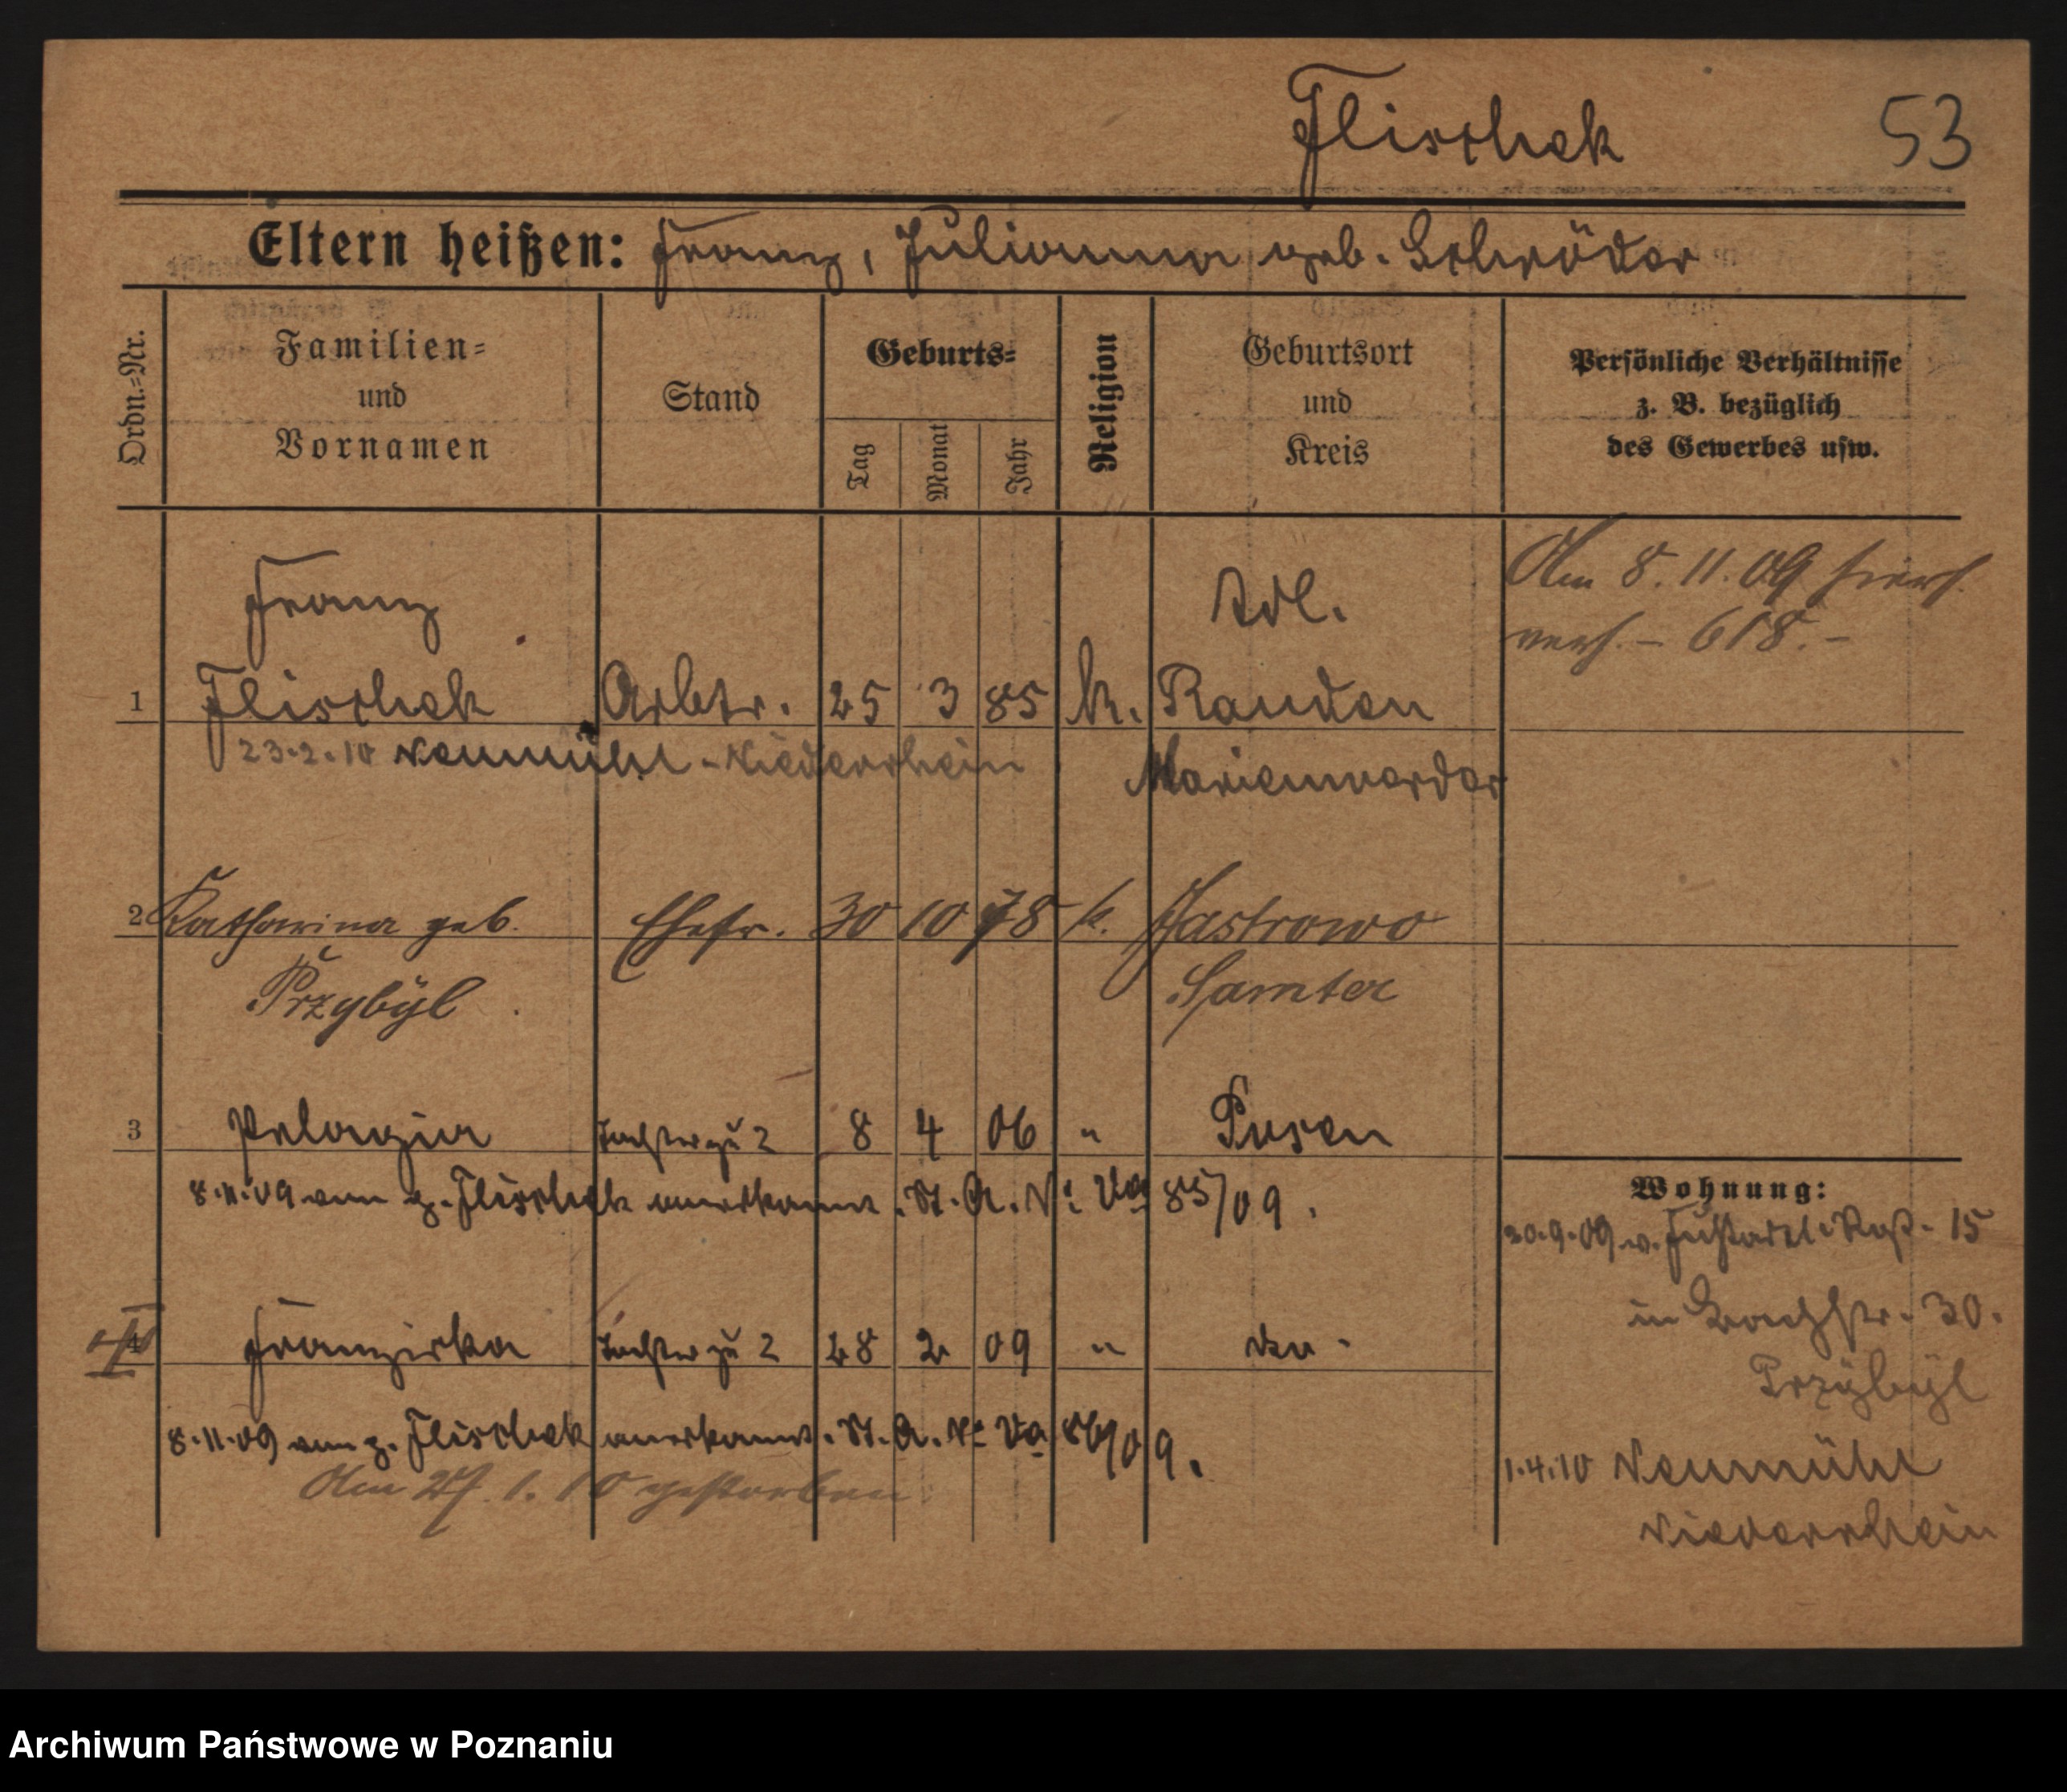 Flischek 53
Eltern heißen: Franz, Julianna geb. Schröder
Ordn.=Nr.
Familien=
und
Vornamen
Stand
Geburts=
Tag
Monat
Jahr
Religion
Geburtsort
und
Kreis
Persönliche Verhältnisse
z. B. bezüglich
des Gewerbes usw.
Franz
Adl.
Am 8. 11. 09 hier
– 618. –
1 Flischek Arbtr. 25 3 85 k. Rauden
23.2.10 Neumühl - Niederrhein Marienwerder
2 Katharina geb. Ehefr. 30 10 78 k. Jastrowo
Przybÿl Samter
3 Pelagia Tochter zu 2 8 4 06 " Posen
8.11.09 vom z. Flischek anerkannt. St. A. N: Va 85/09.
Wohnung:
20.9.09 v. 15
4 Franziska Tochter zu 2 28 2 09 " do.
in 30.
Przÿbÿl
8.11.09 vom z. Flischek anerkannt. St. A. N: Va 86/09.
Am 27. 1. 10 gestorben
1.4.10 Neumühl
Niederrhein
Archiwum Państwowe w Poznaniu